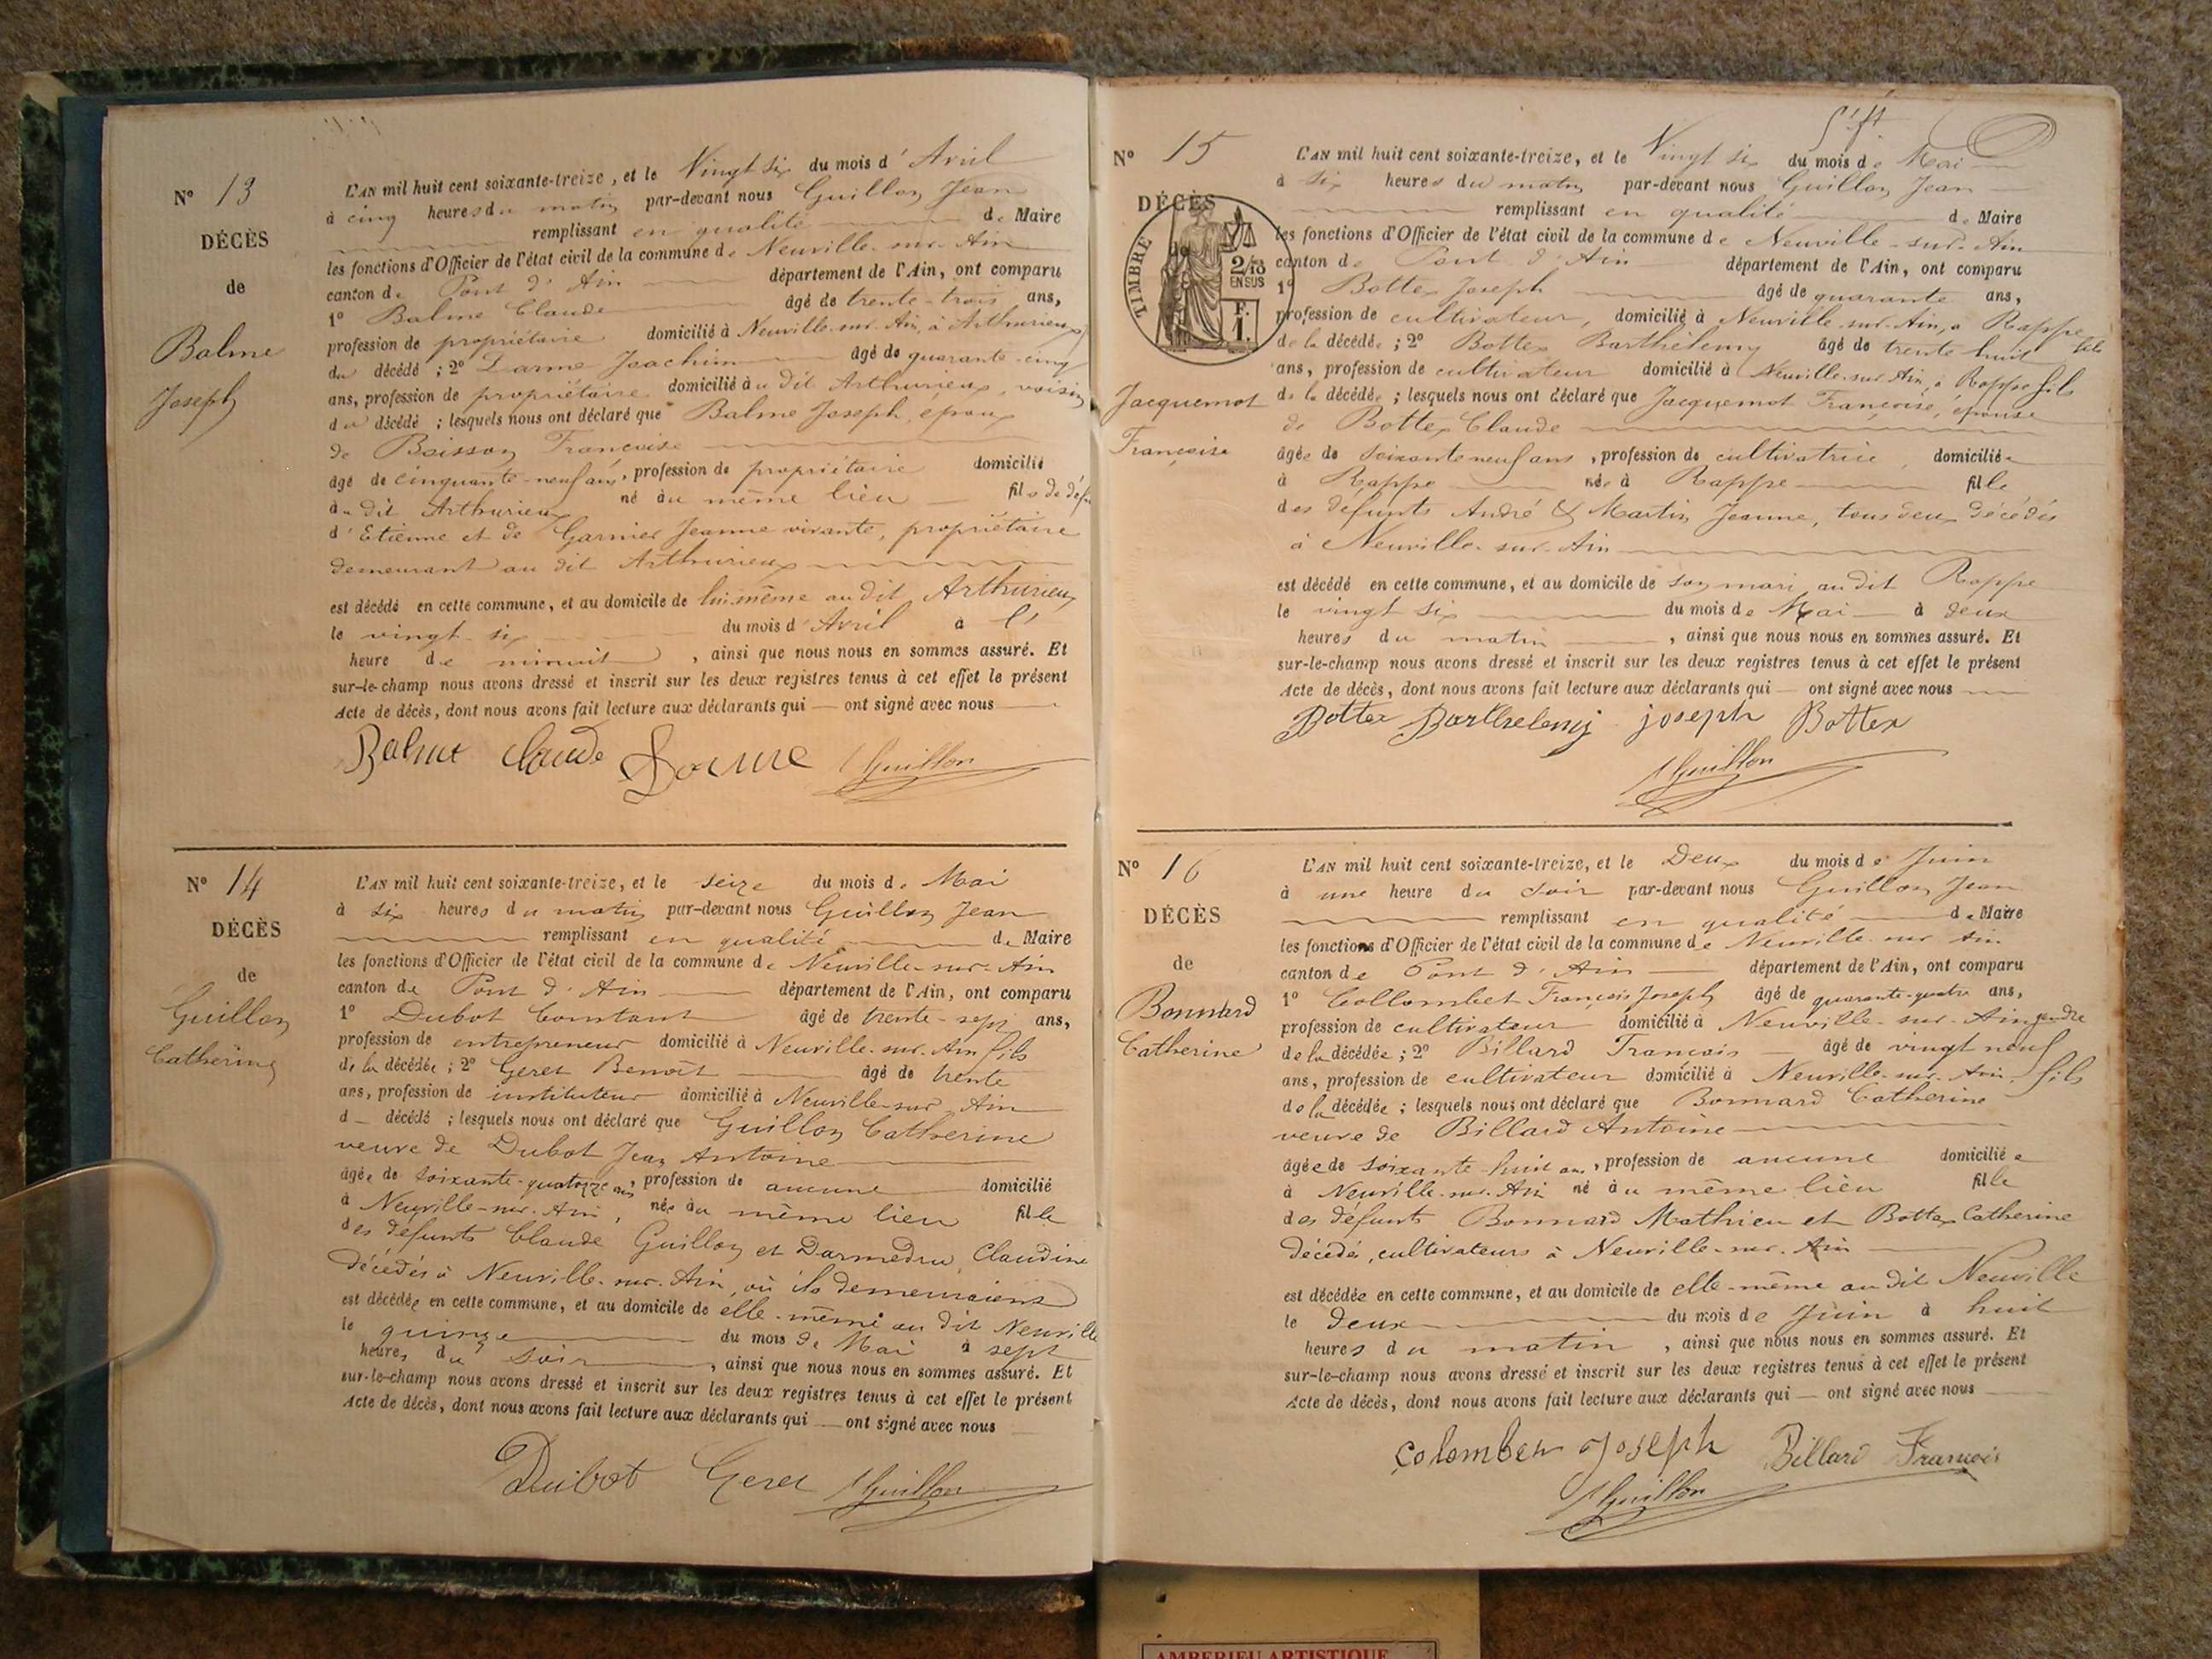 N° 13
DÉCÈS
de
Balme
Joseph
L'AN mil huit cent soixante-treize, et le Vingt six du mois d'Avril
à cinq heures du matin par-devant nous Guillon Jean
remplissant en qualité de Maire
les fonctions d'Officier de l'état civil de la commune de Neuville-sur-Ain
canton de Pont d'Ain département de l'Ain, ont comparu
1° Balme Claude âgé de trente-trois ans,
profession de propriétaire domicilié à Neuville-sur-Ain, à Arthurieux
du décédé ; 2° Darme Joachim âgé de quarante-cinq
ans, profession de propriétaire domicilié au dit Arthurieux, voisin
du décédé ; lesquels nous ont déclaré que Balme Joseph, époux
de Boisson Françoise
âgé de cinquante-neuf ans, profession de propriétaire domicilié
au dit Arthurieux né au même lieu fils de
d'Etienne et de Garnier Jeanne vivante, propriétaire
demeurant au dit Arthurieux
est décédé en cette commune, et au domicile de lui-même au dit Arthurieux
le vingt-six du mois d'Avril à l'
heure de minuit, ainsi que nous nous en sommes assuré. Et
sur-le-champ nous avons dressé et inscrit sur les deux registres tenus à cet effet le présent
Acte de décès, dont nous avons fait lecture aux déclarants qui — ont signé avec nous
Balme Claude Darme Guillon
N° 14
DÉCÈS
de
Guillon
Catherine
L'AN mil huit cent soixante-treize, et le seize du mois de Mai
à six heures du matin par-devant nous Guillon Jean
remplissant en qualité de Maire
les fonctions d'Officier de l'état civil de la commune de Neuville-sur-Ain
canton de Pont d'Ain département de l'Ain, ont comparu
1° Dubot Constant âgé de trente-sept ans,
profession de entrepreneur domicilié à Neuville-sur-Ain fils
de la décédée ; 2° Geret Benoît âgé de trente
ans, profession de instituteur domicilié à Neuville-sur-Ain
d — décédé ; lesquels nous ont déclaré que Guillon Catherine
veuve de Dubot Jean Antoine
âgée de soixante-quatorze ans, profession de aucune domicilié
à Neuville-sur-Ain, née au même lieu fille
des défunts Claude Guillon et Darmedru Claudine
décédés à Neuville-sur-Ain, où ils demeuraient
est décédée en cette commune, et au domicile de elle-même au dit Neuville
le quinze du mois de Mai à sept
heures du soir, ainsi que nous nous en sommes assuré. Et
sur-le-champ nous avons dressé et inscrit sur les deux registres tenus à cet effet le présent
Acte de décès, dont nous avons fait lecture aux déclarants qui — ont signé avec nous
Dubot Geret Guillon
N° 15
DÉCÈS
de
TIMBRE
2/10
EN SUS
F.
1.
Jacquemot
Françoise
L'AN mil huit cent soixante-treize, et le Vingt six du mois de Mai
à six heures du matin par-devant nous Guillon Jean
remplissant en qualité de Maire
les fonctions d'Officier de l'état civil de la commune de Neuville-sur-Ain
canton de Pont d'Ain département de l'Ain, ont comparu
1° Bottex Joseph âgé de quarante ans,
profession de cultivateur, domicilié à Neuville-sur-Ain, à Rappe fils
de la décédée ; 2° Bottex Barthélemy âgé de trente huit
ans, profession de cultivateur domicilié à Neuville-sur-Ain, à Rappe fils
de la décédée ; lesquels nous ont déclaré que Jacquemot Françoise, épouse
de Bottex Claude
âgée de soixante neuf ans, profession de cultivatrice, domiciliée
à Rappe née à Rappe fille
des défunts André & Martin Jeanne, tous deux décédés
à Neuville-sur-Ain
est décédé en cette commune, et au domicile de son mari, au dit Rappe
le vingt six du mois de Mai à deux
heures du matin, ainsi que nous nous en sommes assuré. Et
sur-le-champ nous avons dressé et inscrit sur les deux registres tenus à cet effet le présent
Acte de décès, dont nous avons fait lecture aux déclarants qui — ont signé avec nous
Bottex Barthelemy joseph Bottex
Guillon
N° 16
DÉCÈS
de
Bonnard
Catherine
L'AN mil huit cent soixante-treize, et le Deux du mois de Juin
à une heure du soir par-devant nous Guillon Jean
remplissant en qualité de Maire
les fonctions d'Officier de l'état civil de la commune de Neuville-sur-Ain
canton de Pont d'Ain département de l'Ain, ont comparu
1° Collombet François Joseph âgé de quarante-quatre ans,
profession de cultivateur domicilié à Neuville-sur-Ain gendre
de la décédée ; 2° Billard François âgé de vingt neuf
ans, profession de cultivateur domicilié à Neuville-sur-Ain, fils
de la décédée ; lesquels nous ont déclaré que Bonnard Catherine
veuve de Billard Antoine
âgée de soixante-huit ans, profession de aucune domiciliée
à Neuville-sur-Ain né au même lieu fille
des défunts Bonnard Mathieu et Bottex Catherine
décédé, cultivateurs à Neuville-sur-Ain
est décédée en cette commune, et au domicile de elle-même au dit Neuville
le deux du mois de Juin à huit
heures du matin, ainsi que nous nous en sommes assuré. Et
sur-le-champ nous avons dressé et inscrit sur les deux registres tenus à cet effet le présent
Acte de décès, dont nous avons fait lecture aux déclarants qui — ont signé avec nous
Colombet joseph Billard François
Guillon
AMBERIEU ARTISTIQUE